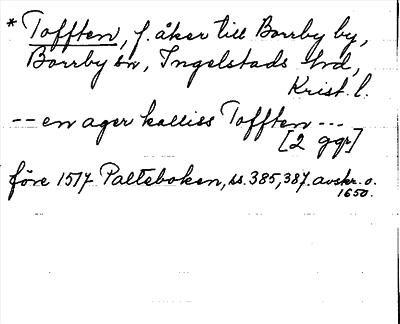 * Tofften, f. åker till Borrby by,
Borrby sn, Ingelstads hrd,
Krist. l.
-- en ager kalliss Tofften ---
[2 ggr]
före 1517 Palteboken, ss. 385, 387. avskr. o.
1650.